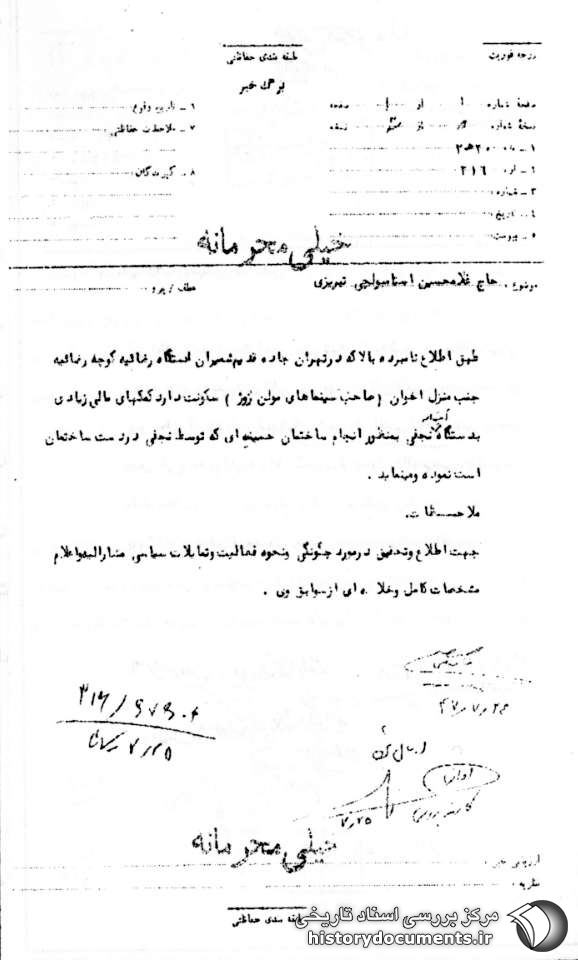 درجه فوریت
طبقه بندی حفاظتی
برگ خبر
صفحه شماره ۱ از ۱ صفحه
نسخه شماره از نسخه
۲ ۲۱۶
۳ - شماره
۴ - تاریخ
۵ - پیوست
۶ - تاریخ وقوع
۷ - ملاحظات حفاظتی
۸ - گیرندگان
خیلی محرمانه
موضوع : حاج غلامحسین استامبولچی تبریزی
عطف / پیرو
طبق اطلاع نامبرده بالا که در تهران جاده قدیم شمیران ایستگاه رضائیه کوچه رضائیه
جنب منزل اخوان ( صاحب سینماهای مولن روژ ) سکونت دارد کمکهای مالی زیادی
بدستگاه آیت اله نجفی بمنظور انجام ساختمان حسینیه ای که توسط نجفی در دست ساختمان
است نموده ومینماید .
ملاحظات.
جهت اطلاع وتحقیق در مورد چگونگی ونحوه فعالیت وتمایلات سیاسی مشارالیه واعلام
مشخصات کامل وخلاصه ای از سوابق وی .
۳۱۶/
۴۷/۷/۲۵
ارسال
۷/۲۵
خیلی محرمانه
ارزیابی خبر :
نظریه :
طبقه بندی حفاظتی
مرکز بررسی اسناد تاریخی
historydocuments.ir